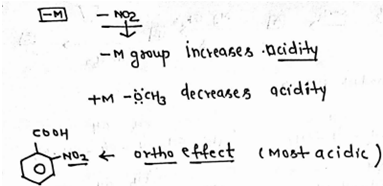 -M - NO2
-M group increases acidity
+M -ÖCH3 decreases acidity
COOH
-NO2 ← ortho effect (Most acidic)